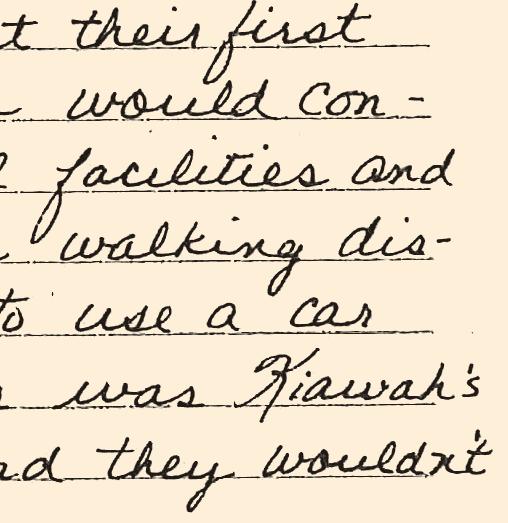 t their first
would con-
facilities and
walking dis-
to use a car
was Kiawah's
nd they wouldn't